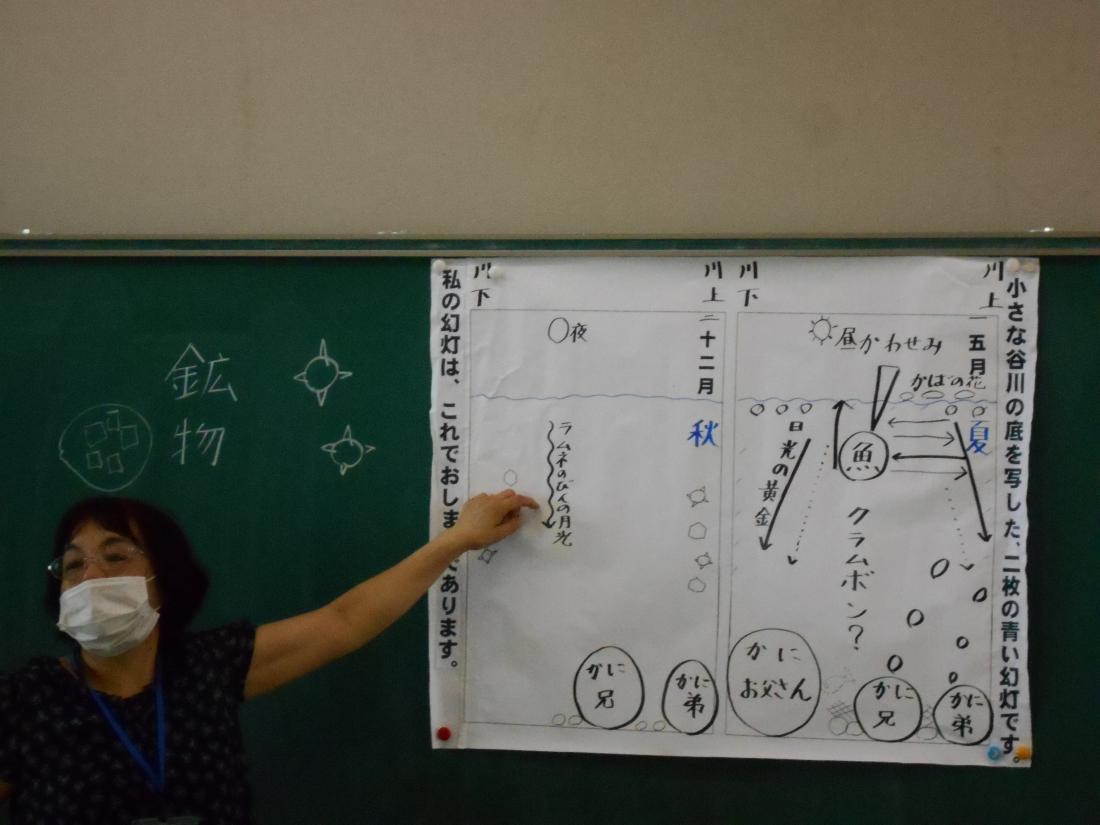 小さな谷川の底を写した、二枚の青い幻灯です。
川上
一 五月
夏
かばの花
昼かわせみ
魚
クラムボン?
日光の黄金
川下
かに
弟
かに
兄
かに
お父さん
川上
二 十二月
秋
夜
ラムネのびんの月光
川下
かに
弟
かに
兄
私の幻灯は、これでおしま
であります。
鉱物